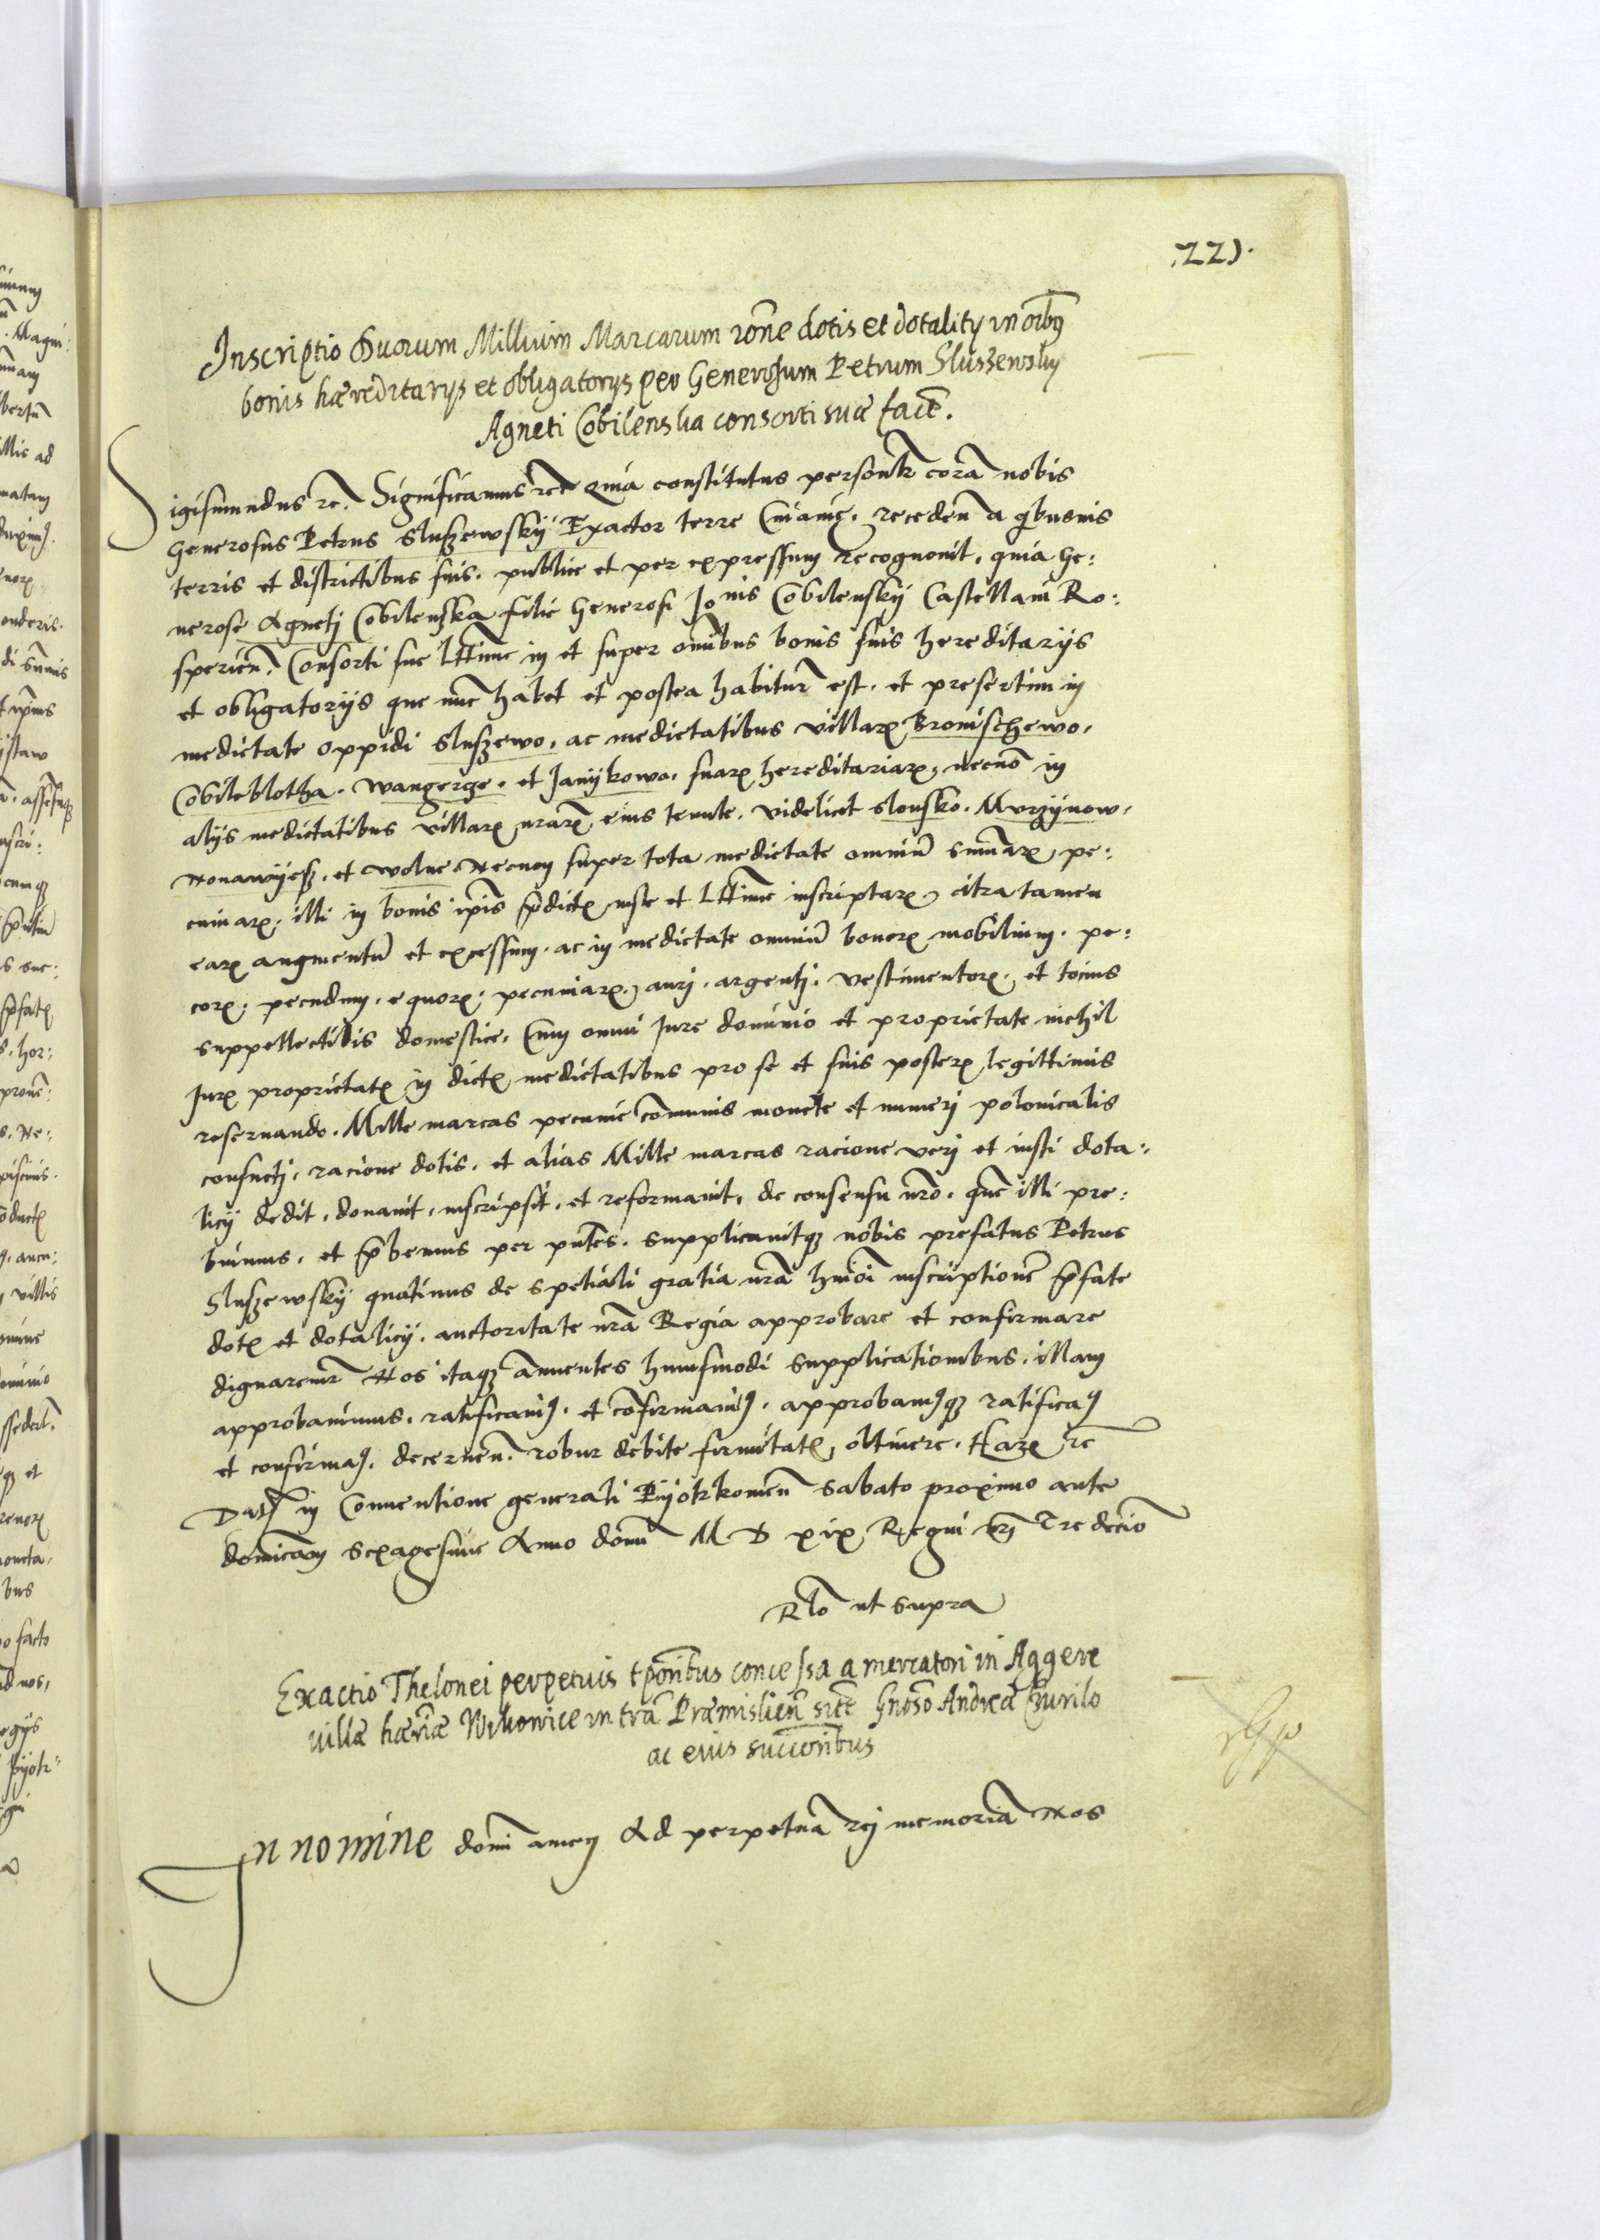 221.
Inscriptio Duorum Millium Marcarum rõne dotis et dotality in oĩbus
bonis hæreditarys et obligatorys per Generosum Petrum Sluszewsky
Agneti Cobilenska consorti suæ facẽ.
Sigismundus rc. Significamus rc̃ Quia constitutus personlr̃ corã nobis
Generosus Petrus Sluszewskÿ Exactor terre Cuiauie. receden̄ a qbusuis
terris et districtibus suis. publice et per expressum recognouit. quia Ge:
nerose Agnetj Cobilenska filie Generosi Jo nis Cobilenskÿ Castellani Ro:
sperien̄. Consorti sue lttime in et super om̃ibus bonis suis hereditarijs
et obligatorijs que nũc habet et postea habitur̃ est. et presertim in
medietate oppidi Sluszewo. ac medietatibus villarꝝ Bronischewo.
Cobileblotha. Wangerze. et Janÿkowo. suarꝝ hereditariarꝝ, necnõ in
alijs medietatibus villarꝝ nr̃arꝝ, eius tenute. videlicet Slonsko. Murzÿnow.
Nonawÿesz. et Wolne. Necnon super tota medietate omniũ sum̃arꝝ, pe:
cuniarꝝ, illi in bonis ip̃is p̃dictꝭ, iuste et lttime inscriptarꝝ, citra tamen
earꝝ augmentũ et excessum. ac in medietate omniũ bonorꝝ mobilium. pe:
corꝝ, pecudum. equorꝝ, pecuniarꝝ, aurj. argentj. vestimentorꝝ, et tocius
suppellectilis domestice. Cum omni Jure dominio et proprietate nichil
Jurꝭ proprietatꝭ in dictꝭ medietatibus pro se et suis posterꝭ legittimis
reseruando. Mille marcas pecunie com̃unis monete et numerj polonicalis
consuetj. racione dotis. et alias Mille marcas racione verj et iusti dota:
licÿ dedit. donauit. inscripsit. et reformauit. de consensu nr̃o. quẽ illi pre:
buimus. et p̃bemus per pñtes. supplicauitqꝫ nobis prefatus Petrus
Sluszewskÿ quatinus de spetiali gratia nr̃a hm̃oi inscriptionẽ p̃fate
dotꝭ et dotalicÿ. auctoritate nr̃a Regia approbare et confirmare
dignaremr̃ Nos itaqꝫ annuentes huiusmodi supplicationibus. illam
approbauimus. ratificauimꝰ. et cõfirmauimꝰ. approbamꝰqꝫ ratificaꝰ
et confirmaꝰ. decernen̄. robur debite firmitatꝭ, obtinere. Harꝝ rc̃
Datꝭ in Conuentione generali Pÿotrkouien̄ Sabato proximo ante
dominicam Sexagesime Anno domi M D xix Regni nr̃j Tredecio
Rlo ut supra
Exactio Thelonei perpetuis tp̃oribus concessa a mercatori in Aggere
villæ hær̃iæ Wikowice in trã Præmislien̄ sitæ Gnoso Andreæ Czurilo
ac eius succoribus
In nomine domi amen Ad perpetuã rej memoriã Nos